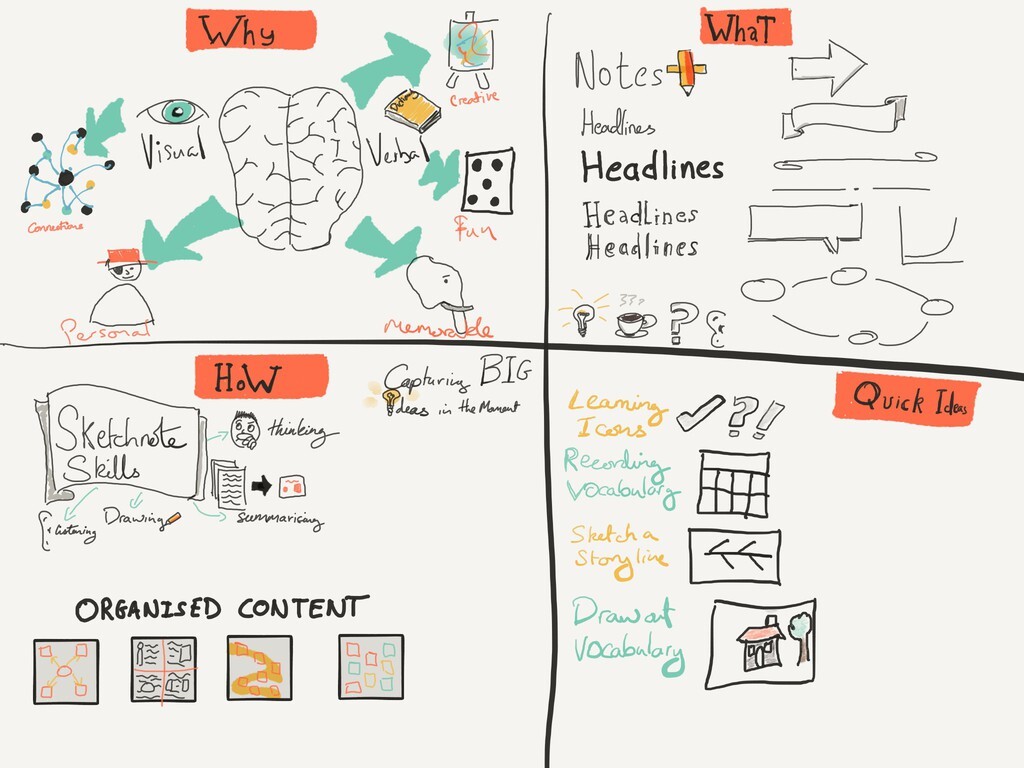 Why
Creative
Dictionary
Visual
Verbal
Connections
Fun
Personal
Memorable
WhaT
Notes
Headlines
Headlines
HeadLines
Headlines
?
HoW
Capturing BIG
Ideas in the Moment
Sketchnote
Skills
thinking
Listening
Drawing
summarising
ORGANISED CONTENT
Quick Ideas
Learning
Icons
?!
Recording
Vocabulary
Sketch a
Storyline
Draw out
Vocabulary